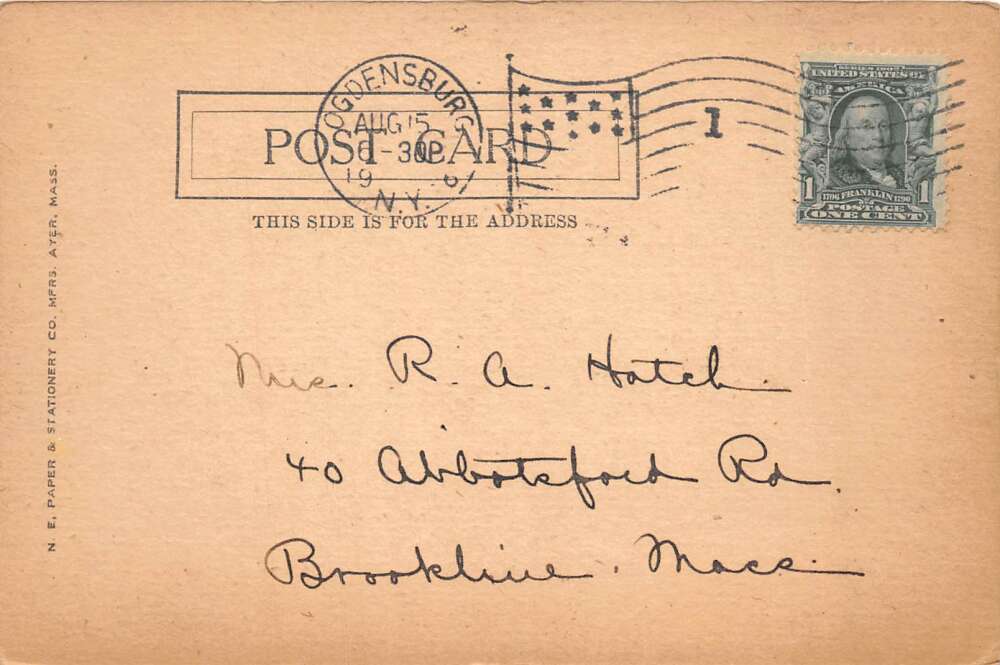 OGDENSBURG
AUG 15
6-30P
19 07
N.Y.
1
SERIES 1902
UNITED STATES OF
AMERICA
1 1706 FRANKLIN 1790 1
POSTAGE
ONE CENT
POST CARD
THIS SIDE IS FOR THE ADDRESS
N. E. PAPER & STATIONERY CO. MFRS. AYER, MASS.
Mrs. R. A. Hatch
40 Abbotsford Rd.
Brookline. Mass.